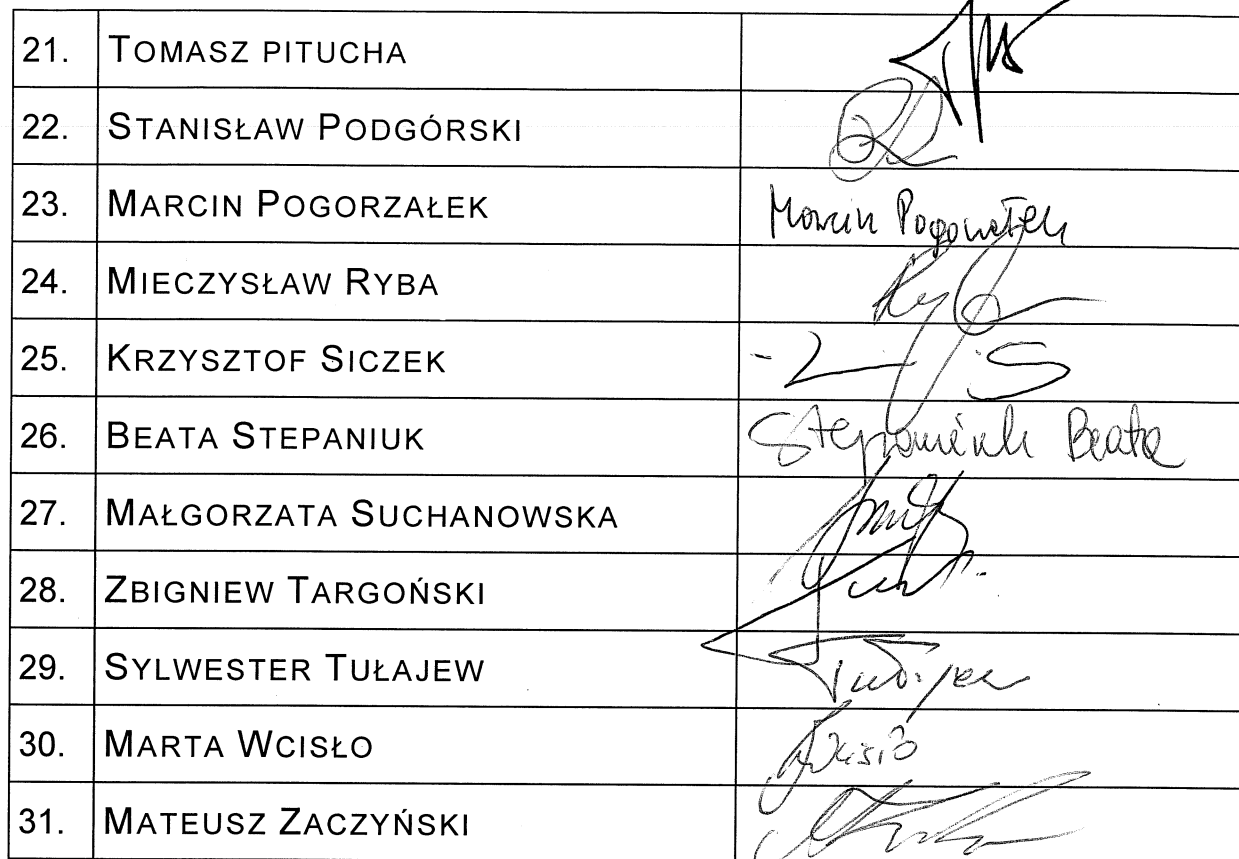 21. TOMASZ PITUCHA
22. STANISŁAW PODGÓRSKI
23. MARCIN POGORZAŁEK Marcin Pogorzałek
24. MIECZYSŁAW RYBA
25. KRZYSZTOF SICZEK
26. BEATA STEPANIUK Stepaniuk Beata
27. MAŁGORZATA SUCHANOWSKA
28. ZBIGNIEW TARGOŃSKI
29. SYLWESTER TUŁAJEW
30. MARTA WCISŁO
31. MATEUSZ ZACZYŃSKI